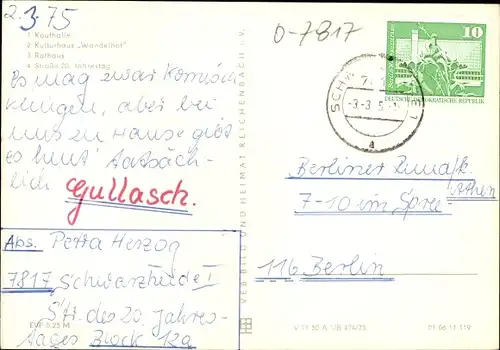 2.3.75
0-7817
1 Kaufhalle
2 Kulturhaus „Wandelhof“
3 Rathaus
4 Straße 20. Jahrestag
Es mag zwar komisch
klingen, aber bei
uns zu Hause gibt
es heut' tatsäch-
lich Gullasch.
Abs. Petra Herzog
7817 Schwarzheide I
Str. des 20. Jahres-
tages Block 12a
EVP 0,25 M
VEB BILD UND HEIMAT REICHENBACH i. V.
10
DEUTSCHE DEMOKRATISCHE REPUBLIK
Berliner Rundfk.
7-10 im Spree-
Athen
116 Berlin
V 11 50 A 1/B 474/73 01 06 14 119